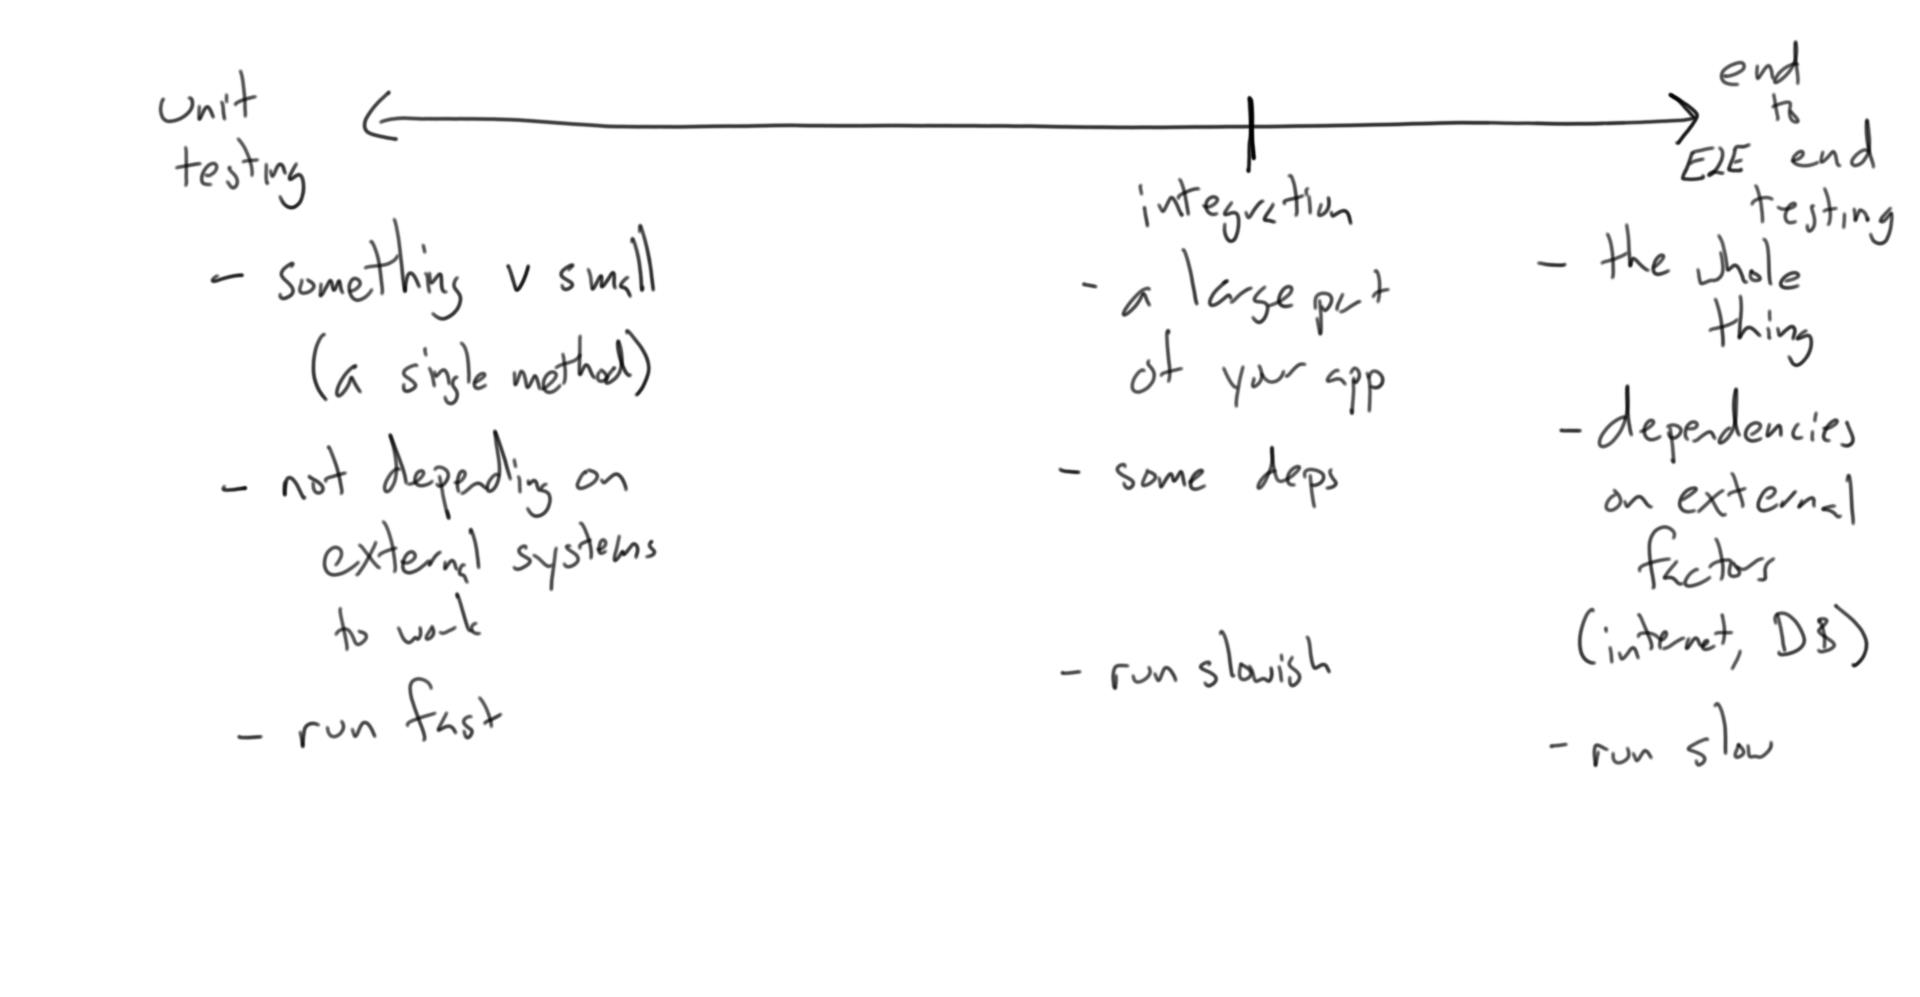 unit
testing
- something v small
(a single method)
- not depending on
external systems
to work
- run fast
integration
- a large part
of your app
- some deps
- run slowish
end
to
E2E end
testing
- the whole
thing
- dependencies
on external
factors
(internet, DB)
- run slow